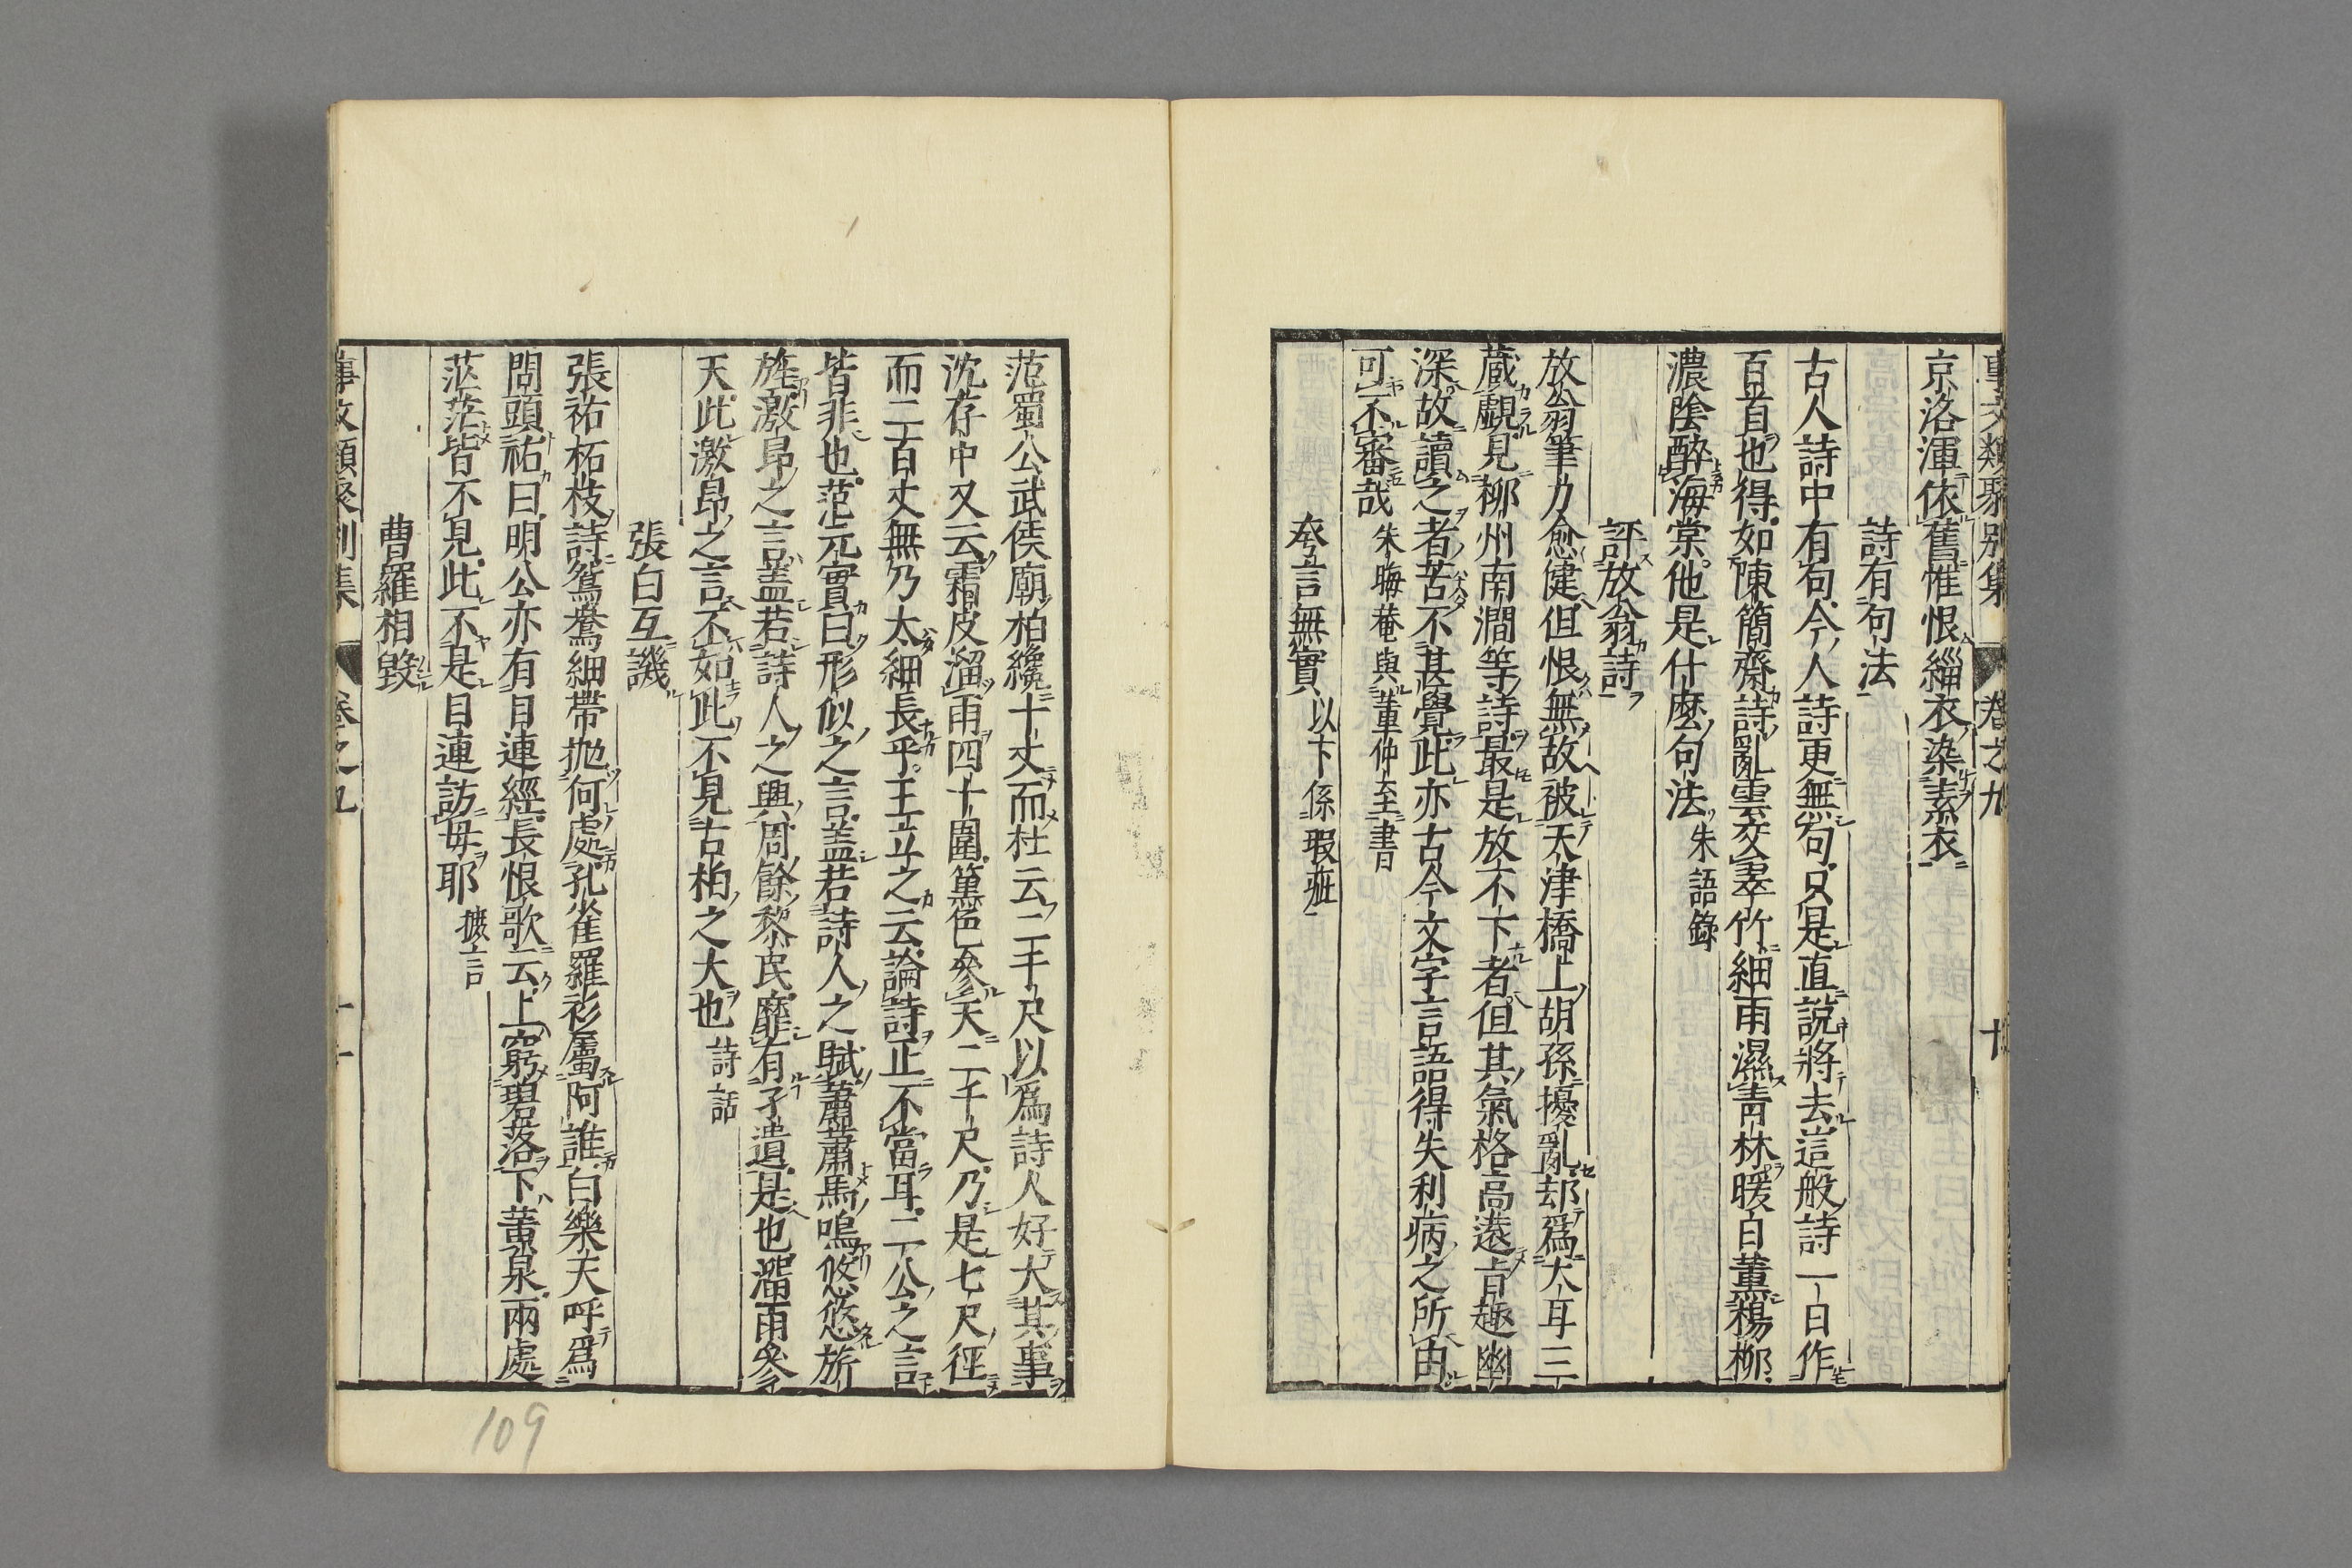 事文類聚別集 卷之九 十
京洛渾依舊惟恨緇衣染素衣
詩有句法
古人詩中有句今人詩更無句只是直說將去這般詩一日作
百首也得如陳簡齋詩亂雲交翠竹細雨濕青林暖白薰楊柳
濃陰醉海棠他是什麼句法朱語錄
評放翁詩
放翁筆力愈健但恨無故被天津橋上胡孫擾亂却爲大耳三
蔵覷見柳州南澗等詩最是放不下者但其氣格高遠旨趣幽
深故讀之者苦不甚覺此亦古今文字言語得失利病之所由
可不審哉朱晦菴與董仲至書
夸言無實以下係瑕疵
范蜀公武侯廟柏纔十丈而杜云二千尺以爲詩人好大其事
沈存中又云霜皮溜雨四十圍黛色參天二千尺乃是七尺徑
而二百丈無乃太細長乎王立之云論詩止不當耳二公之言
皆非也范元實曰形似之言盖若詩人之賦蕭蕭馬鳴悠悠旆
旌激昂之言盖若詩人之興周餘黎民靡有孑遺是也溜雨參
天此激昂之言不如此不見古柏之大也詩話
張白互譏
張祐柘枝詩鴛鴦細帶拋何處孔雀羅衫屬阿誰白樂天呼爲
問頭祐曰明公亦有目連經長恨歌云上窮碧落下黃泉兩處
茫茫皆不見此不是目連訪母耶摭言
曹羅相毀
事文類聚別集 卷之九 十一
109